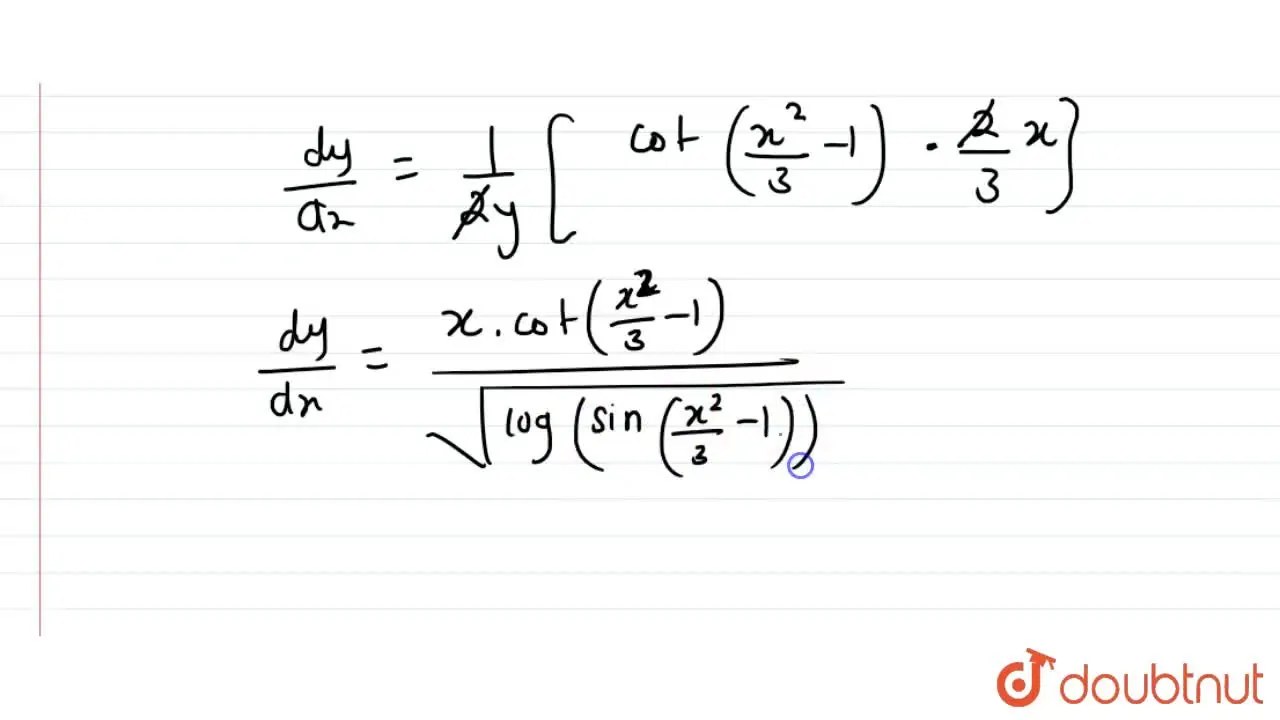 dy/dx = 1/2y [ cot (x²/3 −1) · 2/3 x }
dy/dx = x . cot (x²/3 −1) / √log (sin (x²/3 −1))
doubtnut